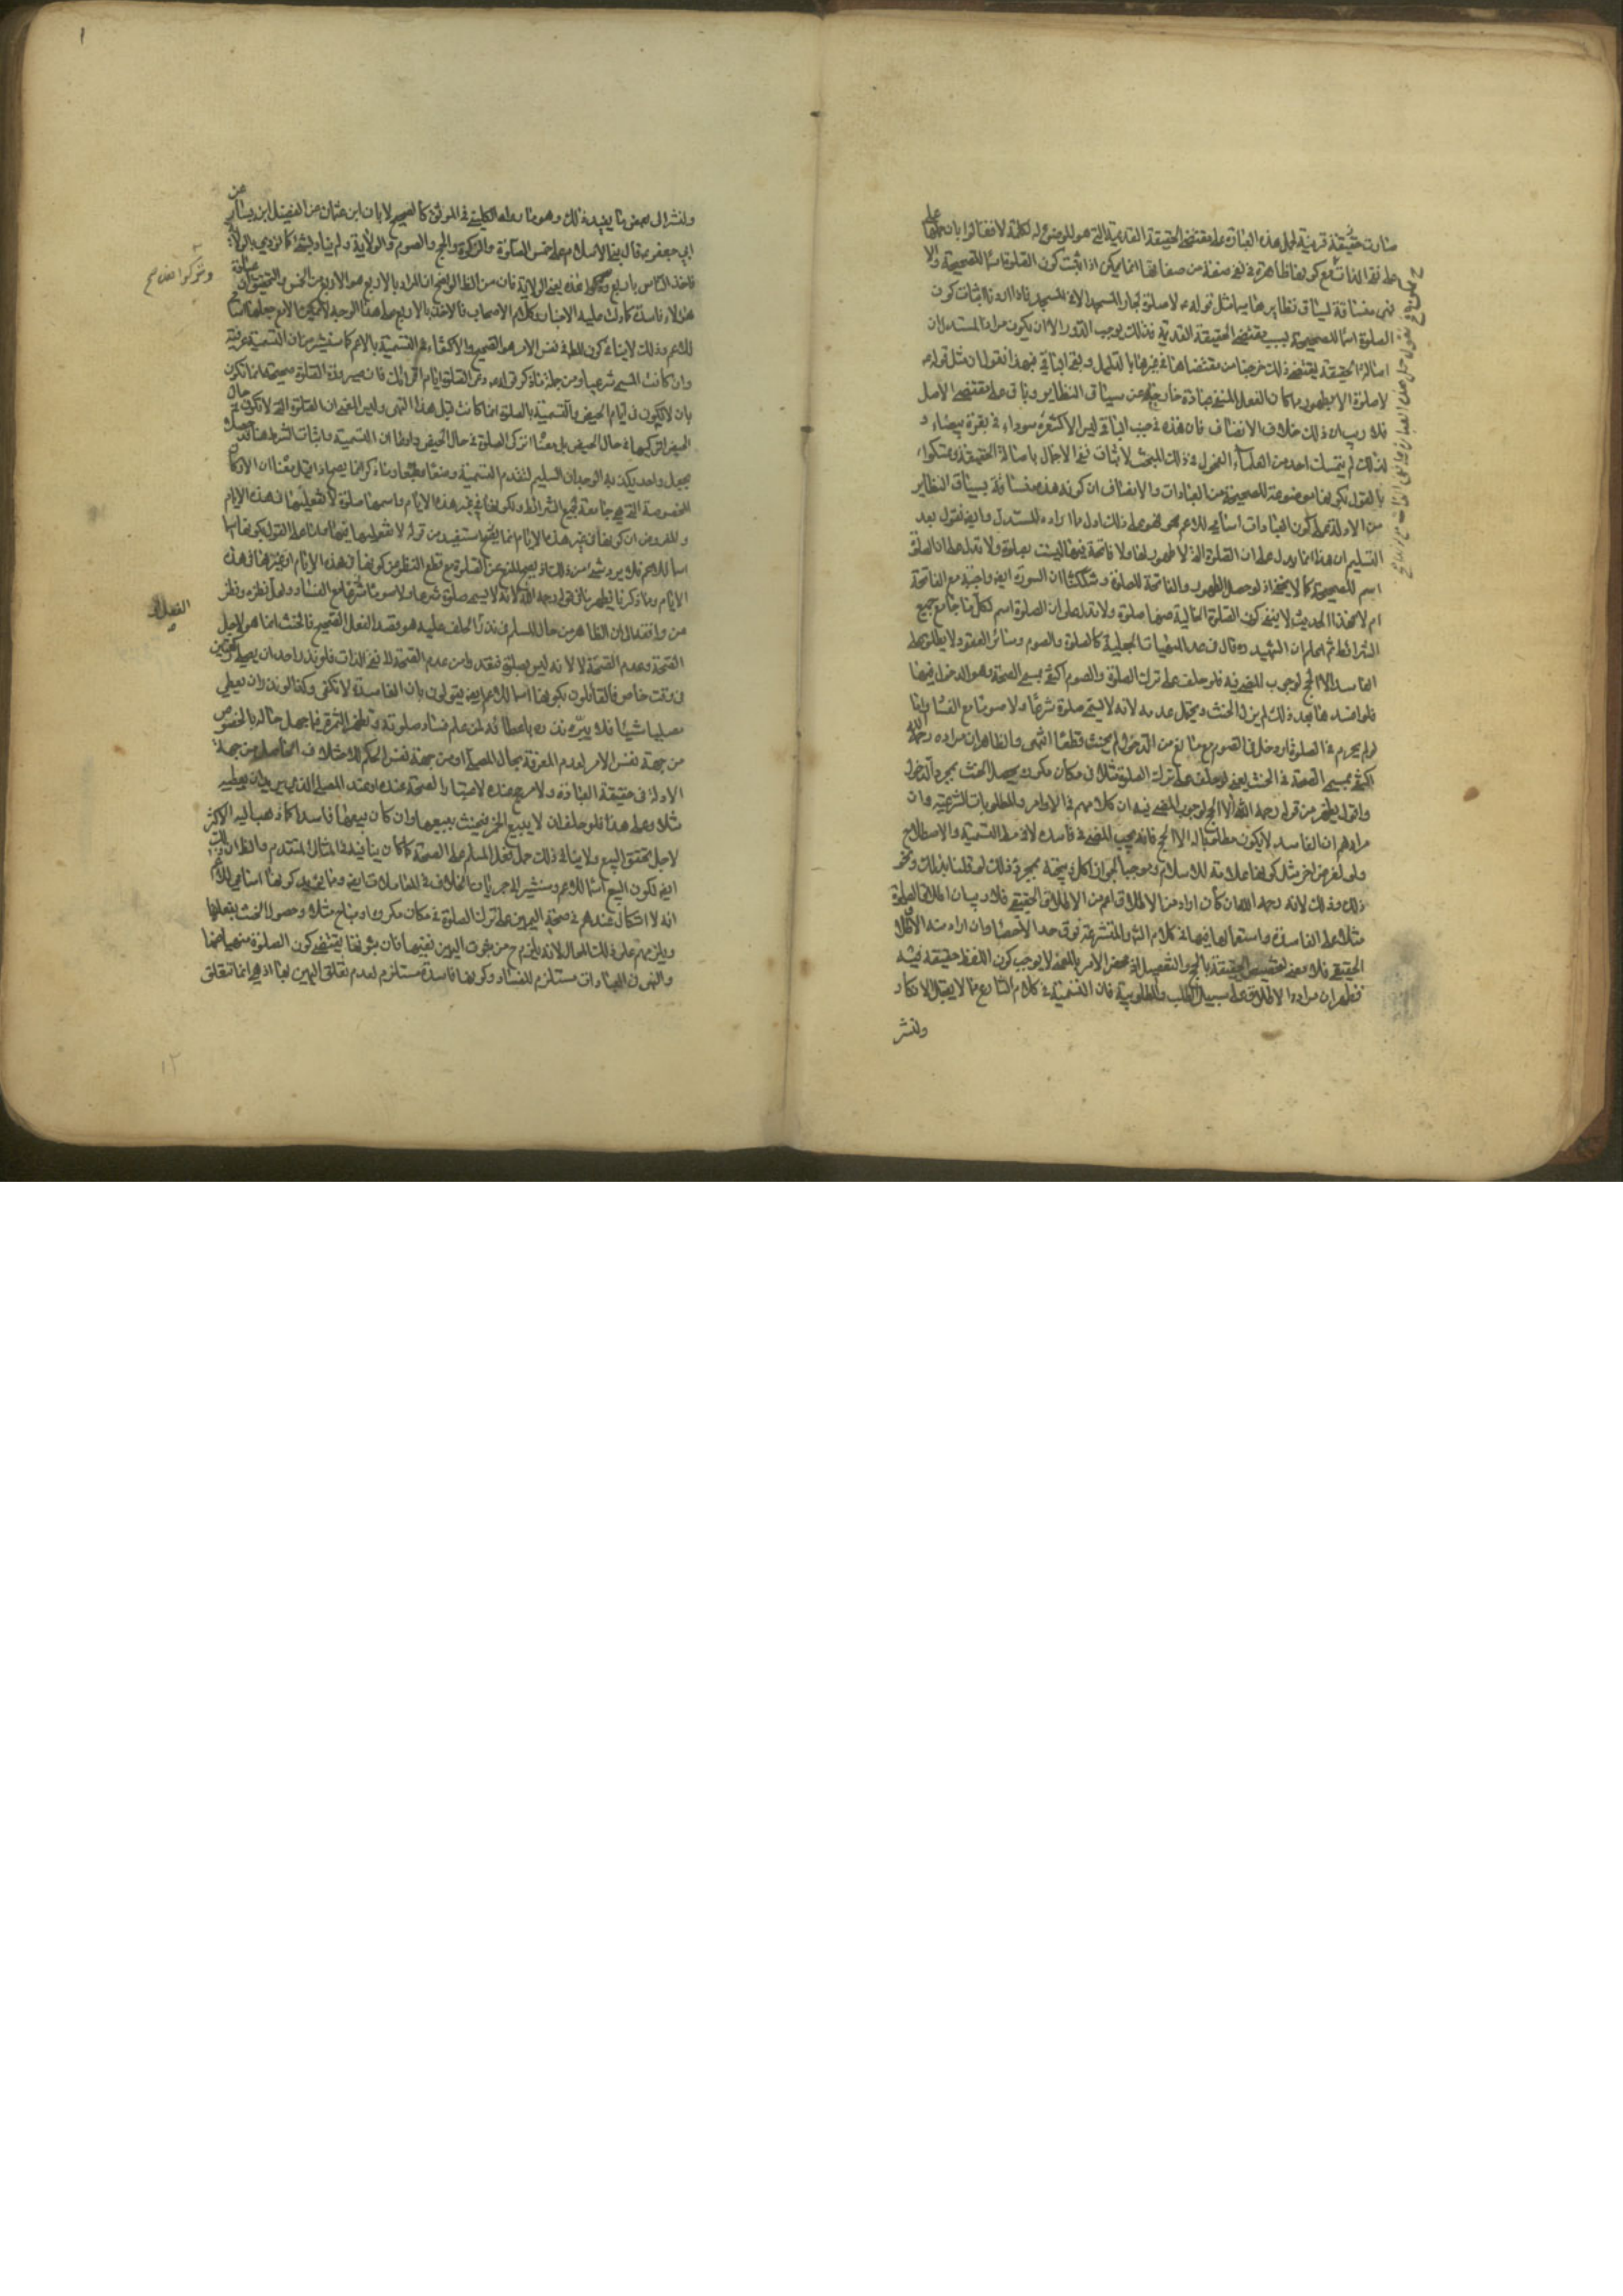 صارت حقيقة قرينة لحمل هذه العبارة على مقتضى الحقيقة القديمة التي هو الموضوع له لكلمة لا فقالوا بان حملها على
على نفي الذات مع كونها ظاهرة في نفي صفة من صفاتها انما يمكن اذا ثبت كون الصلوة اسما للصحيحة والا
فهي مساقة لسياق نظايرها مثل قوله لا صلوة لجار المسجد الا في المسجد فاذا اردنا اثبات كون
الصلوة اسما للصحيحة بسبب مقتضى الحقيقة القديمة فذلك يوجب الدور الا ان يكون مراد المستدل ان
اصالة الحقيقة يقتضي ذلك خرجنا من مقتضاها في غيرها بالدليل وبقي الباقي فبهذا نقول ان مثل قوله
لا صلوة الا بطهور مما كان الفعل المنفي عبادة خارجة عن سياق النظاير وباق على مقتضى الاصل
فلا ريب ان ذلك خلاف الانصاف فان هذه في جنب الباقي ليس الا كشعرة سوداء في بقرة بيضاء و
لذلك لم يتمسك احد من العلماء الفحول في ذلك المبحث لاثبات نفي الاجمال باصالة الحقيقة وتمسكوا
بالقول بكونها موضوعة للصحيحة من العبادات والانصاف ان كون هذه مساقة بسياق النظاير
من الادلة على كون العبادات اسامي للاعم فهو على ذلك ادل مما اراده المستدل وايضا نقول بعد
التسليم ان هذا انما يدل على ان الصلوة التي لا طهور لها ولا فاتحة فيها ليست بصلوة ولا تدل على ان الصلوة
اسم للصحيحة كما لا يخفى اذ لو حصل الطهور والفاتحة للصلوة وشككنا ان السورة ايضا واجبة مع الفاتحة
ام لا فهذا الحديث لا ينفي كون الصلوة الخالية عنها صلوة ولا يدل على ان الصلوة اسم لكل ما جامع جميع
الشرائط ثم اعلم ان الشهيد ره قال في عد الماهيات الجعلية كالصلوة والصوم وسائر العقود لا يطلق على
الفاسد الا الحج لوجوب المضي فيه فلو حلف على ترك الصلوة والصوم اكتفى بمسمى الصحة وهو الدخول فيها
فلو افسدها بعد ذلك لم يزل الحنث ويحتمل عدمه لانه لا يسمى صلوة شرعا ولا صوما مع الفساد واما
لو لم يحرم في الصلوة او دخل في الصوم مع مانع من الدخول لم يحنث قطعا انتهى والظاهر ان مراده رحمه الله
اكتفى بمسمى الصحة في الحنث يعني لو حلف على ترك الصلوة مثلا في مكان مكروه يحصل الحنث بمجرد الدخول
واقول يظهر من قوله رحمه الله الا الحج لوجوب المضي فيه ان كلامهم في الاوامر والمطلوبات الشرعية وان
مرادهم ان الفاسد لا يكون مطلوبا له الا الحج فانه يجب المضي في فاسده لا في مطلق التسمية والاصطلاح
ولو لغرض اخر مثل كونها علامة للاسلام وموجبا لجواز اكل ذبيحته بمجرد ذلك لو قلنا بذلك ونحو
ذلك وذلك لانه رحمه الله ان كان اراد من الاطلاق اعم من الاطلاق الحقيقي فلا ريب ان اطلاق الصلوة
مثلا على الفاسدة واستعمالها فيها في كلام الشارع والمتشرعة فوق حد الاحصاء وان اراد منه الاطلاق
الحقيقي فلا معنى لتخصيص الحقيقة بالحج والتفصيل اذ محض الامر بالمضي لا يوجب كون اللفظ حقيقة فيه
فظهر ان مراده الاطلاق على سبيل الطلب والمطلوبية فان التسمية في كلام الشارع مما لا يقبل الانكار
ولنشر
ولنشر الى بعض ما يفيد ذلك وهو ما رواه الكليني في الموثق كالصحيح لابان ابن عثمان عن الفضيل ابن يسار عن
ابي جعفر ع قال بني الاسلام على خمس الصلوة والزكوة والحج والصوم والولاية ولم يناد بشيء كما نودي بالولاية
فاخذ الناس باربع وتركوا هذه يعني الولاية فان من الظاهر الواضح ان المراد بالاربع هو الاربع من الخمس والتحقيق ان عبادة
هؤلاء فاسدة كما دلت عليه الاخبار وكلام الاصحاب فالاخذ بالاربع على هذا الوجه لا يمكن الا مع جعلها اسامي
للاعم وذلك لا ينافي كون المطلوب في نفس الامر هو الصحيح والاكتفاء في التسمية بالاعم كما سنشير من ان التسمية عرفية
وان كانت المسمى شرعيا ومن جملة ما ذكر قوله ع دعي الصلوة ايام اقرائك فان صيرورة الصلوة صحيحة انما تكون
بان لا تكون في ايام الحيض والتسمية بالصلوة انما كانت قبل هذا النهي وليس المعنى ان الصلوة التي لا تكون في حال
الحيض اتركيها في حال الحيض بل معناه اترك الصلوة في حال الحيض والظاهر ان التسمية واثبات الشرط هنا قد حصل
بجعل واحد يكذبه الوجدان السليم لتقدم التسمية وضعا وطبعا وما ذكر انما يصح اذا قيل معناه ان الاركان
المخصوصة التي هي جامعة لجميع الشرائط وتكون في غير هذه الايام واسمها صلوة لا تفعليها في هذه الايام
والمفروض ان كونها في غير هذه الايام انما يستفيد من قوله لا تفعليها فيها واما على القول بكونها
اسما للاعم فلا يرد شيء من ذلك اذ يصح المنع عن الصلوة مع قطع النظر عن كونها في هذه الايام او غيرها في هذه
الايام ومما ذكرنا يظهر ما في قوله رحمه الله لانه لا يسمى صلوة شرعا ولا صوما شرعا مع الفساد ولعل نظره ونظر
من وافقه الى ان الظاهر من حال المسلم في نذر الحلف عليه هو قصد الفعل الصحيح فالحنث انما هو لاجل
الصحة وعدم الصحة لا لانه ليس بصلوة فنقد ... من عدم الصحة لا نفي الذات فلو نذر احد ان يصلي ركعتين
في وقت خاص فالقائلون بكونها اسما للاعم ايضا يقولون بان الفاسدة لا تكفي وكذا لو نذر ان يعطي
مصليا شيئا فلا يبرء نذره باعطائه لمن علم فساد صلوته وتظهر الثمرة فيما جهل حاله بالخصوص
من جهة نفس الامر لعدم المعرفة بحال المصلي او من جهة نفس الحكم كالاختلاف الحاصل من جهة
الادلة في حقيقة العبادة ولا مرجح عنده لاعتبار الصحة عنده او عند المصلي الذي يريد ان يعطيه
مثلا وعلى هذا فلو حلف ان لا يبيع الخمر فيحنث ببيعها وان كان بيعها فاسدا كما ذهب اليه الاكثر
لاجل تحقق البيع ولا ينافي ذلك حمل فعل المسلم على الصحة كما كان ينافيه في المثال المتقدم والظاهر ان البيع
ايضا لكون البيع اسما للاعم وسنشير الى جريان الخلاف في المعاملات ايضا ومما يؤيد كونها اسامي للاعم
انه لا اشكال عندهم في صحة اليمين على ترك الصلوة في مكان مكروه او مباح مثلا وحصول الحنث بفعلها
ويلزمهم على ذلك المحال لانه يلزم ح من ثبوت اليمين نفيها فان ثبوتها يقتضي كون الصلوة منهيا عنها
والنهي في العبادات مستلزم للفساد وكونها فاسدة مستلزم لعدم تعلق اليمين بها اذ هي انما تتعلق